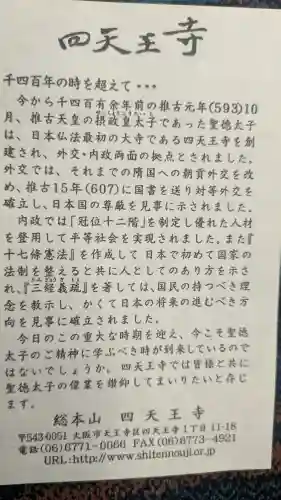 四天王寺
千四百年の時を超えて・・・
今から千四百有余年前の推古元年(593)10
月、推古天皇の摂政皇太子であった聖徳太子
は、日本仏法最初の大寺である四天王寺を創
建され、外交・内政両面の拠点とされました。
外交では、それまでの隋国への朝貢外交を改
め、推古15年(607)に国書を送り対等外交を
確立し、日本国の尊厳を見事に示されました。
内政では「冠位十二階」を制定し優れた人材
を登用して平等社会を実現されました。また『
十七條憲法』を作成して日本で初めて国家の
法制を整えると共に人としてのあり方を示さ
れ、『三経義疏』を著しては、国民の持つべき理
念を教示し、かくて日本の将来の進むべき方
向を見事に確立されました。
今日のこの重大な時期を迎え、今こそ聖徳
太子のご精神に学ぶべき時が到来しているので
はないでしょうか。四天王寺では皆様と共に
聖徳太子の偉業を讃仰してまいりたいと存じ
ます。
総本山 四天王寺
〒543-0051 大阪市天王寺区四天王寺1丁目11-18
電話(06)6771-0066 FAX(06)6773-4921
URL:http://www.shitennouji.or.jp